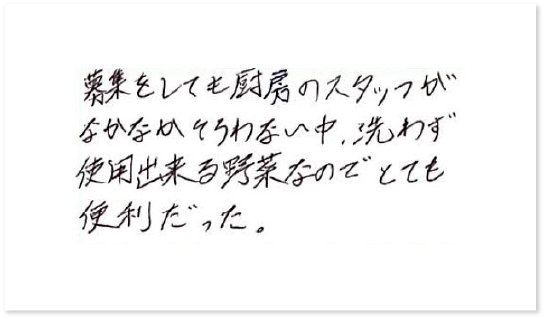 募集をしても厨房のスタッフが
なかなかそろわない中、洗わず
使用出来る野菜なのでとても
便利だった。